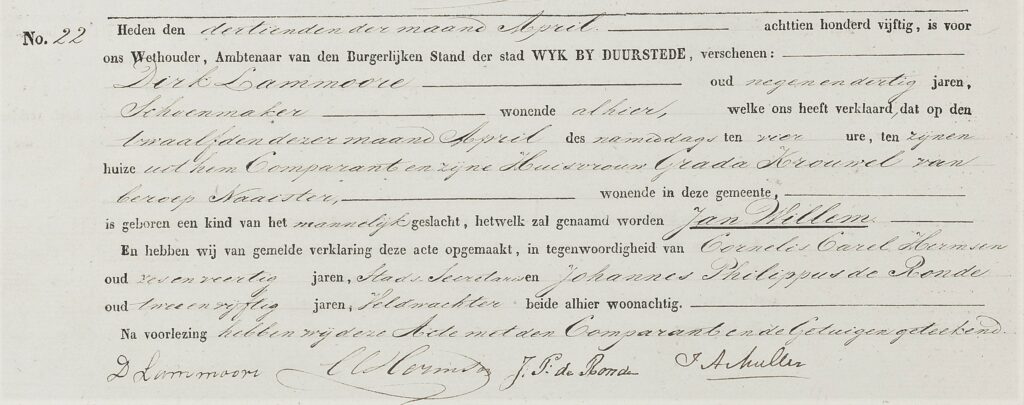 No. 22 Heden den dertienden der maand April. achttien honderd vijftig, is voor
ons Wethouder, Ambtenaar van den Burgerlijken Stand der stad WYK BY DUURSTEDE, verschenen:
Dirk Lammoore oud negenendertig jaren,
Schoenmaker wonende alhier, welke ons heeft verklaard, dat op den
twaalfden dezer maand April des namiddags ten vier ure, ten zijnen
huize uit hem Comparant en zijne Huisvrouw Grada Krouwel van
beroep Naaister, wonende in deze gemeente,
is geboren een kind van het mannelijk geslacht, hetwelk zal genaamd worden Jan Willem.
En hebben wij van gemelde verklaring deze acte opgemaakt, in tegenwoordigheid van Cornelis Carel Hermsen
oud zesenveertig jaren, Stads Secretaris en Johannes Philippus de Ronde
oud tweeenvijftig jaren, Veldwachter beide alhier woonachtig.
Na voorlezing hebben wij deze Acte met den Comparant en de Getuigen geteekend.
D Lammoore CC Hermsen J. P. de Ronde J A Muller